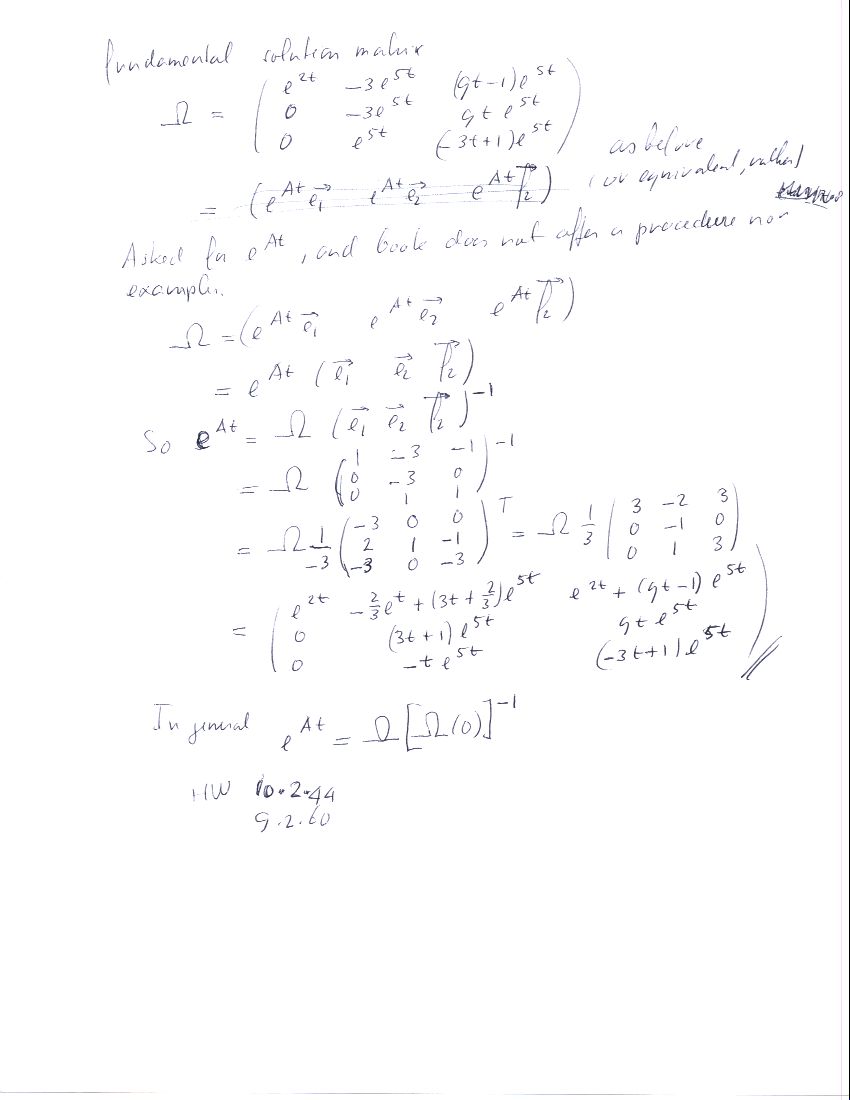 fundamental solution matrix
Ω = ( e^{2t} -3e^{5t} (9t-1)e^{5t}
0 -3e^{5t} 9t e^{5t}
0 e^{5t} (-3t+1)e^{5t} )
= (e^{At} \vec{e_1} e^{At} \vec{e_2} e^{At} \vec{f_2}) as before
(or equivalent, rather)
Asked for e^{At}, and book does not offer a procedure nor
example.
Ω = (e^{At} \vec{e_1} e^{At} \vec{e_2} e^{At} \vec{f_2})
= e^{At} (\vec{e_1} \vec{e_2} \vec{f_2})
So e^{At} = Ω (\vec{e_1} \vec{e_2} \vec{f_2})^{-1}
= Ω ( 1 -3 -1
0 -3 0
0 1 1 )^{-1}
= Ω \frac{1}{-3} ( -3 0 0
2 1 -1
-3 0 -3 )^T = Ω \frac{1}{3} ( 3 -2 3
0 -1 0
0 1 3 )
= ( e^{2t} -\frac{2}{3}e^{t}+(3t+\frac{2}{3})e^{5t} e^{2t}+(9t-1)e^{5t}
0 (3t+1)e^{5t} 9t e^{5t}
0 -t e^{5t} (-3t+1)e^{5t} ) //
In general e^{At} = Ω [Ω(0)]^{-1}
HW 10.2.44
9.2.60